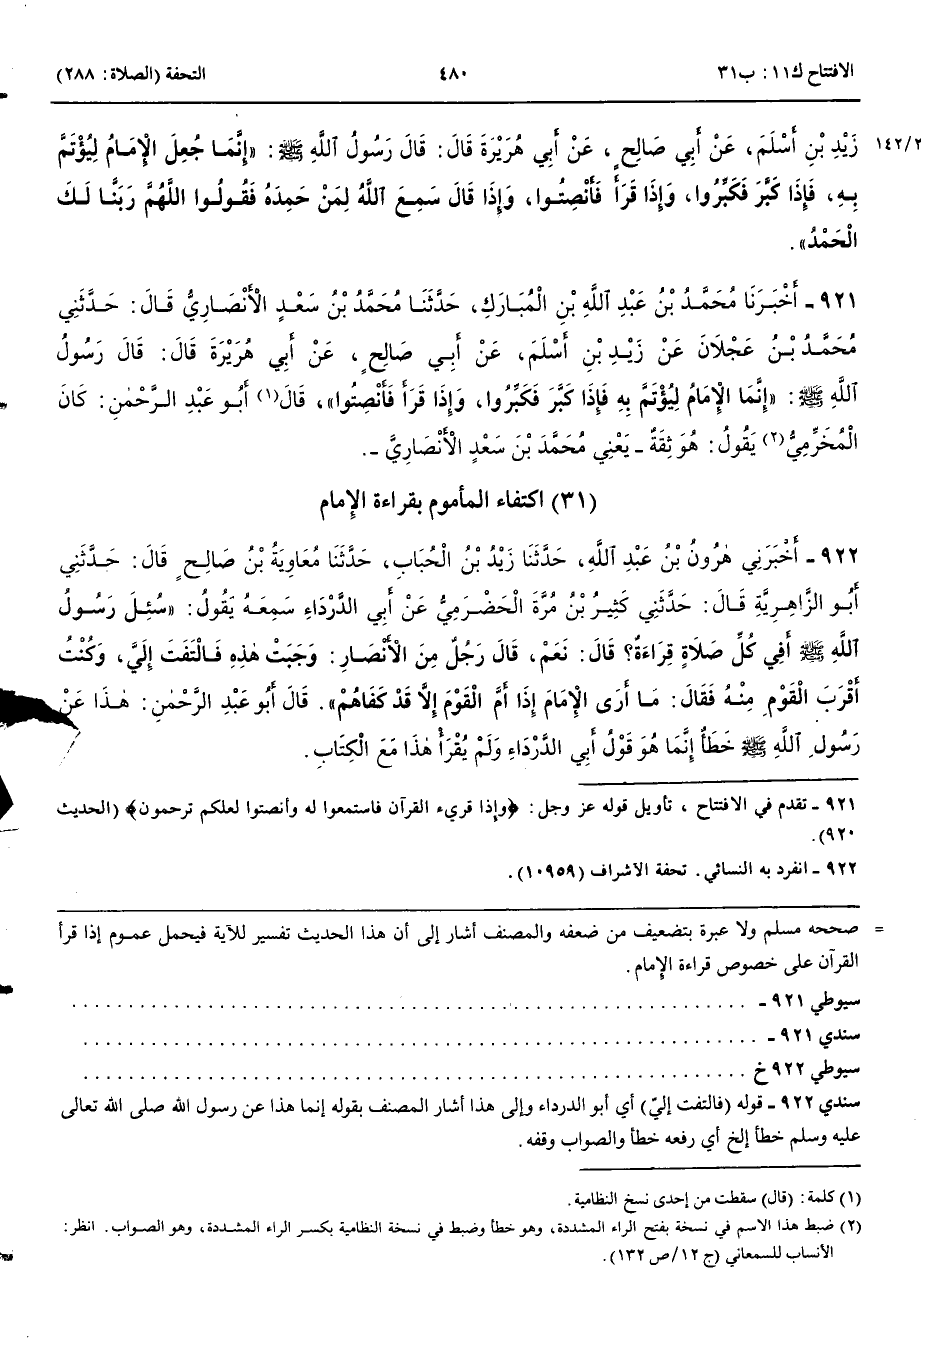 الافتتاح ك١١: ب٣١ ٤٨٠ التحفة (الصلاة: ٢٨٨)
١٤٢/٢ زَيْدِ بْنِ أَسْلَمَ، عَنْ أَبِي صَالِحٍ، عَنْ أَبِي هُرَيْرَةَ قَالَ: قَالَ رَسُولُ اللَّهِ ﷺ: «إِنَّمَا جُعِلَ الْإِمَامُ لِيُؤْتَمَّ
بِهِ، فَإِذَا كَبَّرَ فَكَبِّرُوا، وَإِذَا قَرَأَ فَأَنْصِتُوا، وَإِذَا قَالَ سَمِعَ اللَّهُ لِمَنْ حَمِدَهُ فَقُولُوا اللَّهُمَّ رَبَّنَا لَكَ
الْحَمْدُ».
٩٢١ - أَخْبَرَنَا مُحَمَّدُ بْنُ عَبْدِ اللَّهِ بْنِ الْمُبَارَكِ، حَدَّثَنَا مُحَمَّدُ بْنُ سَعْدٍ الْأَنْصَارِيُّ قَالَ: حَدَّثَنِي
مُحَمَّدُ بْنُ عَجْلَانَ عَنْ زَيْدِ بْنِ أَسْلَمَ، عَنْ أَبِي صَالِحٍ، عَنْ أَبِي هُرَيْرَةَ قَالَ: قَالَ رَسُولُ
اللَّهِ ﷺ: «إِنَّمَا الْإِمَامُ لِيُؤْتَمَّ بِهِ فَإِذَا كَبَّرَ فَكَبِّرُوا، وَإِذَا قَرَأَ فَأَنْصِتُوا»، قَالَ(١) أَبُو عَبْدِ الرَّحْمٰنِ: كَانَ
الْمُخَرِّمِيُّ(٢) يَقُولُ: هُوَ ثِقَةٌ - يَعْنِي مُحَمَّدَ بْنَ سَعْدٍ الْأَنْصَارِيَّ -.
(٣١) اكتفاء المأموم بقراءة الإمام
٩٢٢ - أَخْبَرَنِي هٰرُونُ بْنُ عَبْدِ اللَّهِ، حَدَّثَنَا زَيْدُ بْنُ الْحُبَابِ، حَدَّثَنَا مُعَاوِيَةُ بْنُ صَالِحٍ قَالَ: حَدَّثَنِي
أَبُو الزَّاهِرِيَّةِ قَالَ: حَدَّثَنِي كَثِيرُ بْنُ مُرَّةَ الْحَضْرَمِيُّ عَنْ أَبِي الدَّرْدَاءِ سَمِعَهُ يَقُولُ: «سُئِلَ رَسُولُ
اللَّهِ ﷺ أَفِي كُلِّ صَلَاةٍ قِرَاءَةٌ؟ قَالَ: نَعَمْ، قَالَ رَجُلٌ مِنَ الْأَنْصَارِ: وَجَبَتْ هٰذِهِ فَالْتَفَتَ إِلَيَّ، وَكُنْتُ
أَقْرَبَ الْقَوْمِ مِنْهُ فَقَالَ: مَا أَرَى الْإِمَامَ إِذَا أَمَّ الْقَوْمَ إِلَّا قَدْ كَفَاهُمْ». قَالَ أَبُو عَبْدِ الرَّحْمٰنِ: هٰذَا عَنْ
رَسُولِ اللَّهِ ﷺ خَطَأٌ إِنَّمَا هُوَ قَوْلُ أَبِي الدَّرْدَاءِ وَلَمْ يُقْرَأْ هٰذَا مَعَ الْكِتَابِ.
٩٢١ - تقدم في الافتتاح، تأويل قوله عز وجل: ﴿وإذا قريء القرآن فاستمعوا له وأنصتوا لعلكم ترحمون﴾ (الحديث
٩٢٠).
٩٢٢ - انفرد به النسائي. تحفة الأشراف (١٠٩٥٩).
= صححه مسلم ولا عبرة بتضعيف من ضعفه والمصنف أشار إلى أن هذا الحديث تفسير للآية فيحمل عموم إذا قرأ
القرآن على خصوص قراءة الإمام.
سيوطي ٩٢١ - ........................................
سندي ٩٢١ - ........................................
سيوطي ٩٢٢ خ ........................................
سندي ٩٢٢ - قوله (فالتفت إليّ) أي أبو الدرداء وإلى هذا أشار المصنف بقوله إنما هذا عن رسول الله صلى الله تعالى
عليه وسلم خطأ إلخ أي رفعه خطأ والصواب وقفه.
(١) كلمة: (قال) سقطت من إحدى نسخ النظامية.
(٢) ضبط هذا الاسم في نسخة بفتح الراء المشددة، وهو خطأ وضبط في نسخة النظامية بكسر الراء المشددة، وهو الصواب. انظر:
الأنساب للسمعاني (ج ١٢/ص ١٣٢).